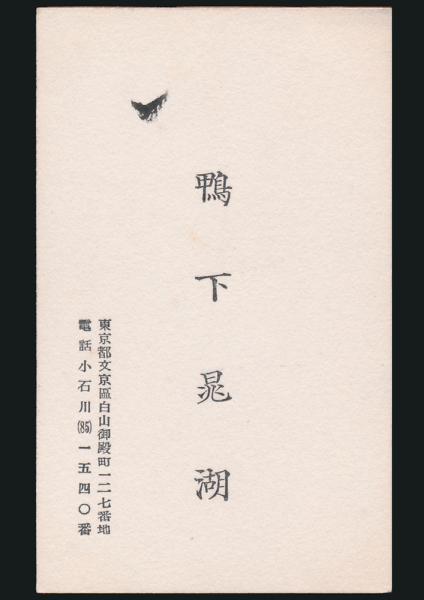 鴨下晁湖
東京都文京區白山御殿町一二七番地
電話小石川(85)一五四〇番